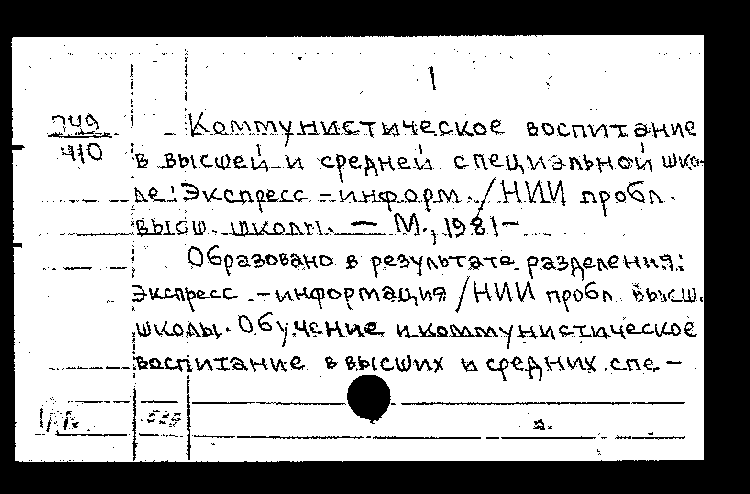 1
749
410
Коммунистическое воспитание
в высшей и средней специальной шко-
ле: Экспресс-информ. / НИИ пробл.
высш. школы. — М., 1981-
Образовано в результате разделения:
Экспресс-информация / НИИ пробл. высш.
школы. Обучение и коммунистическое
воспитание в высших и средних спе-